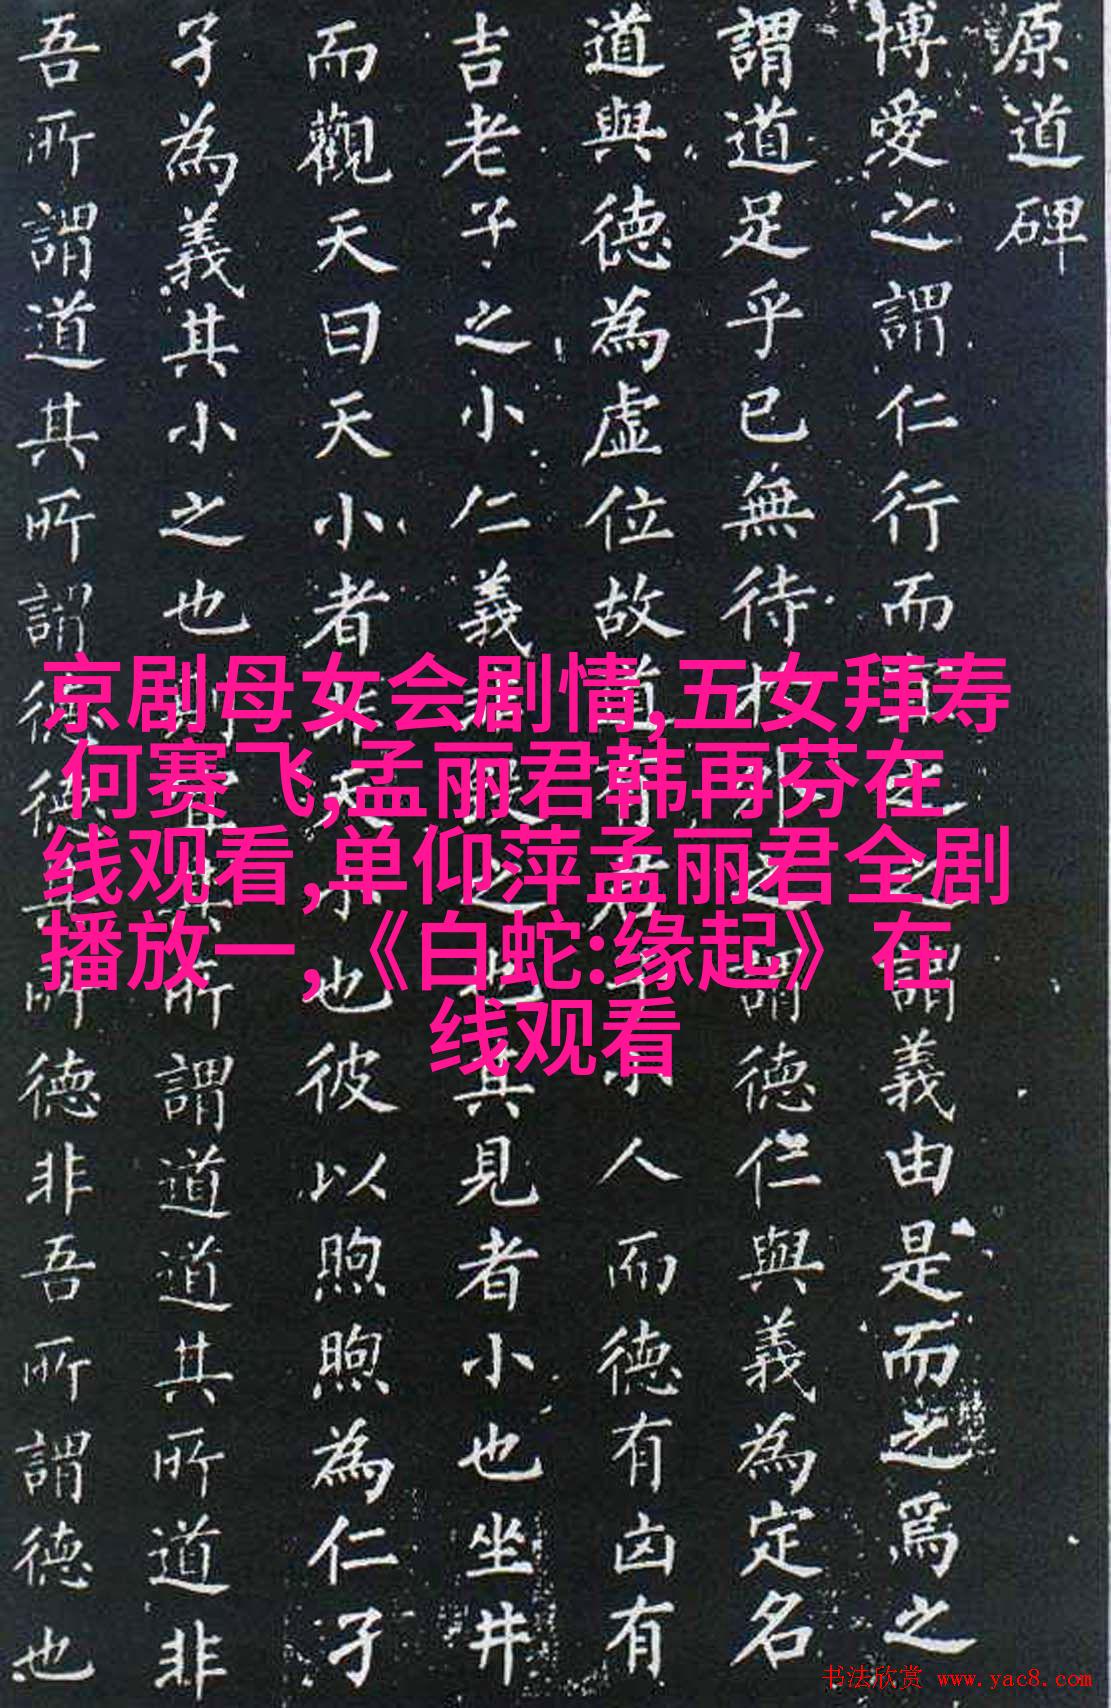 原道碑
博愛之謂仁行而宜之之謂義由是而之焉之
謂道足乎已無待於外之謂德仁與義為定名
道與德為虛位故道有君子小人而德有凶有
吉老子之小仁義非毀之也其見者小也坐井
而觀天曰天小者非天小也彼以煦煦為仁孑
孑為義其小之也則宜其所謂道道其所道非
吾所謂道其所謂德德其所德非吾所謂德也
京剧母女会剧情,五女拜寿
何赛飞,孟丽君韩再芬在
线观看,单仰萍孟丽君全剧
播放一,《白蛇:缘起》在
线观看
书法欣赏 www.yac8.com